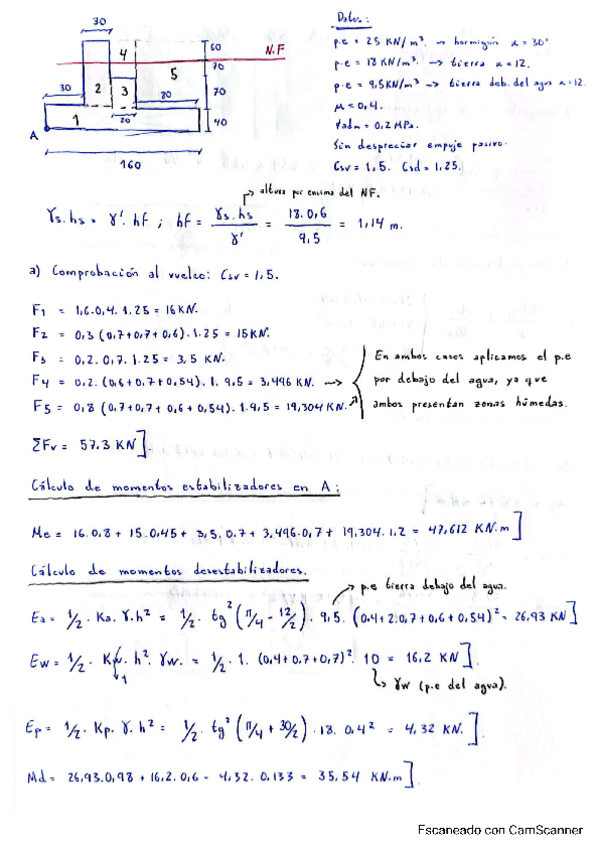 30
Datos:
p.e = 25 KN/m³. → hormigón α = 30°
p.e = 18 KN/m³. → tierra α = 12.
p.e = 9,5 KN/m³ → tierra deb. del agua α = 12.
μ = 0,4.
σadm = 0,2 MPa.
Sin despreciar empuje pasivo.
Csv = 1,5. Csd = 1,25.
N.F
4
60
5
70
30
2
3
80
70
1
20
40
A
160
altura por encima del NF.
γs.hs = γ'. hf ; hf = γs.hs / γ' = 18.0,6 / 9,5 = 1,14 m.
a) Comprobación al vuelco: Csv = 1,5.
F1 = 1,6.0,4.1.25 = 16 KN.
F2 = 0,3 (0,7+0,7+0,6).1.25 = 15 KN.
F3 = 0,2.0,7.1.25 = 3,5 KN.
F4 = 0,2.(0,6+0,7+0,54).1.9,5 = 3,496 KN. →
F5 = 0,8 (0,7+0,7+0,6+0,54).1.9,5 = 19,304 KN.
En ambos casos aplicamos el p.e
por debajo del agua, ya que
ambos presentan zonas húmedas.
ΣFv = 57.3 KN]
Cálculo de momentos estabilizadores en A:
Me = 16.0,8 + 15.0,45 + 3,5.0,7 + 3,496.0,7 + 19,304.1,2 = 47,612 KN.m]
Cálculo de momentos desestabilizadores.
p.e tierra debajo del agua.
Ea = 1/2. Ka. γ.h² = 1/2. tg² (π/4 - 12/2). 9,5. (0,4+2.0,7+0,6+0,54)² = 26,93 KN]
Ew = 1/2. Kw. h². γw. = 1/2. 1. (0,4+0,7+0,7)². 10 = 16,2 KN].
1
γw (p.e del agua).
Ep = 1/2. Kp. γ. h² = 1/2. tg² (π/4 + 30/2). 18. 0,4² = 4,32 KN.]
Md = 26,93.0,98 + 16,2.0,6 - 4,32.0,133 = 35,54 KN.m]
Escaneado con CamScanner